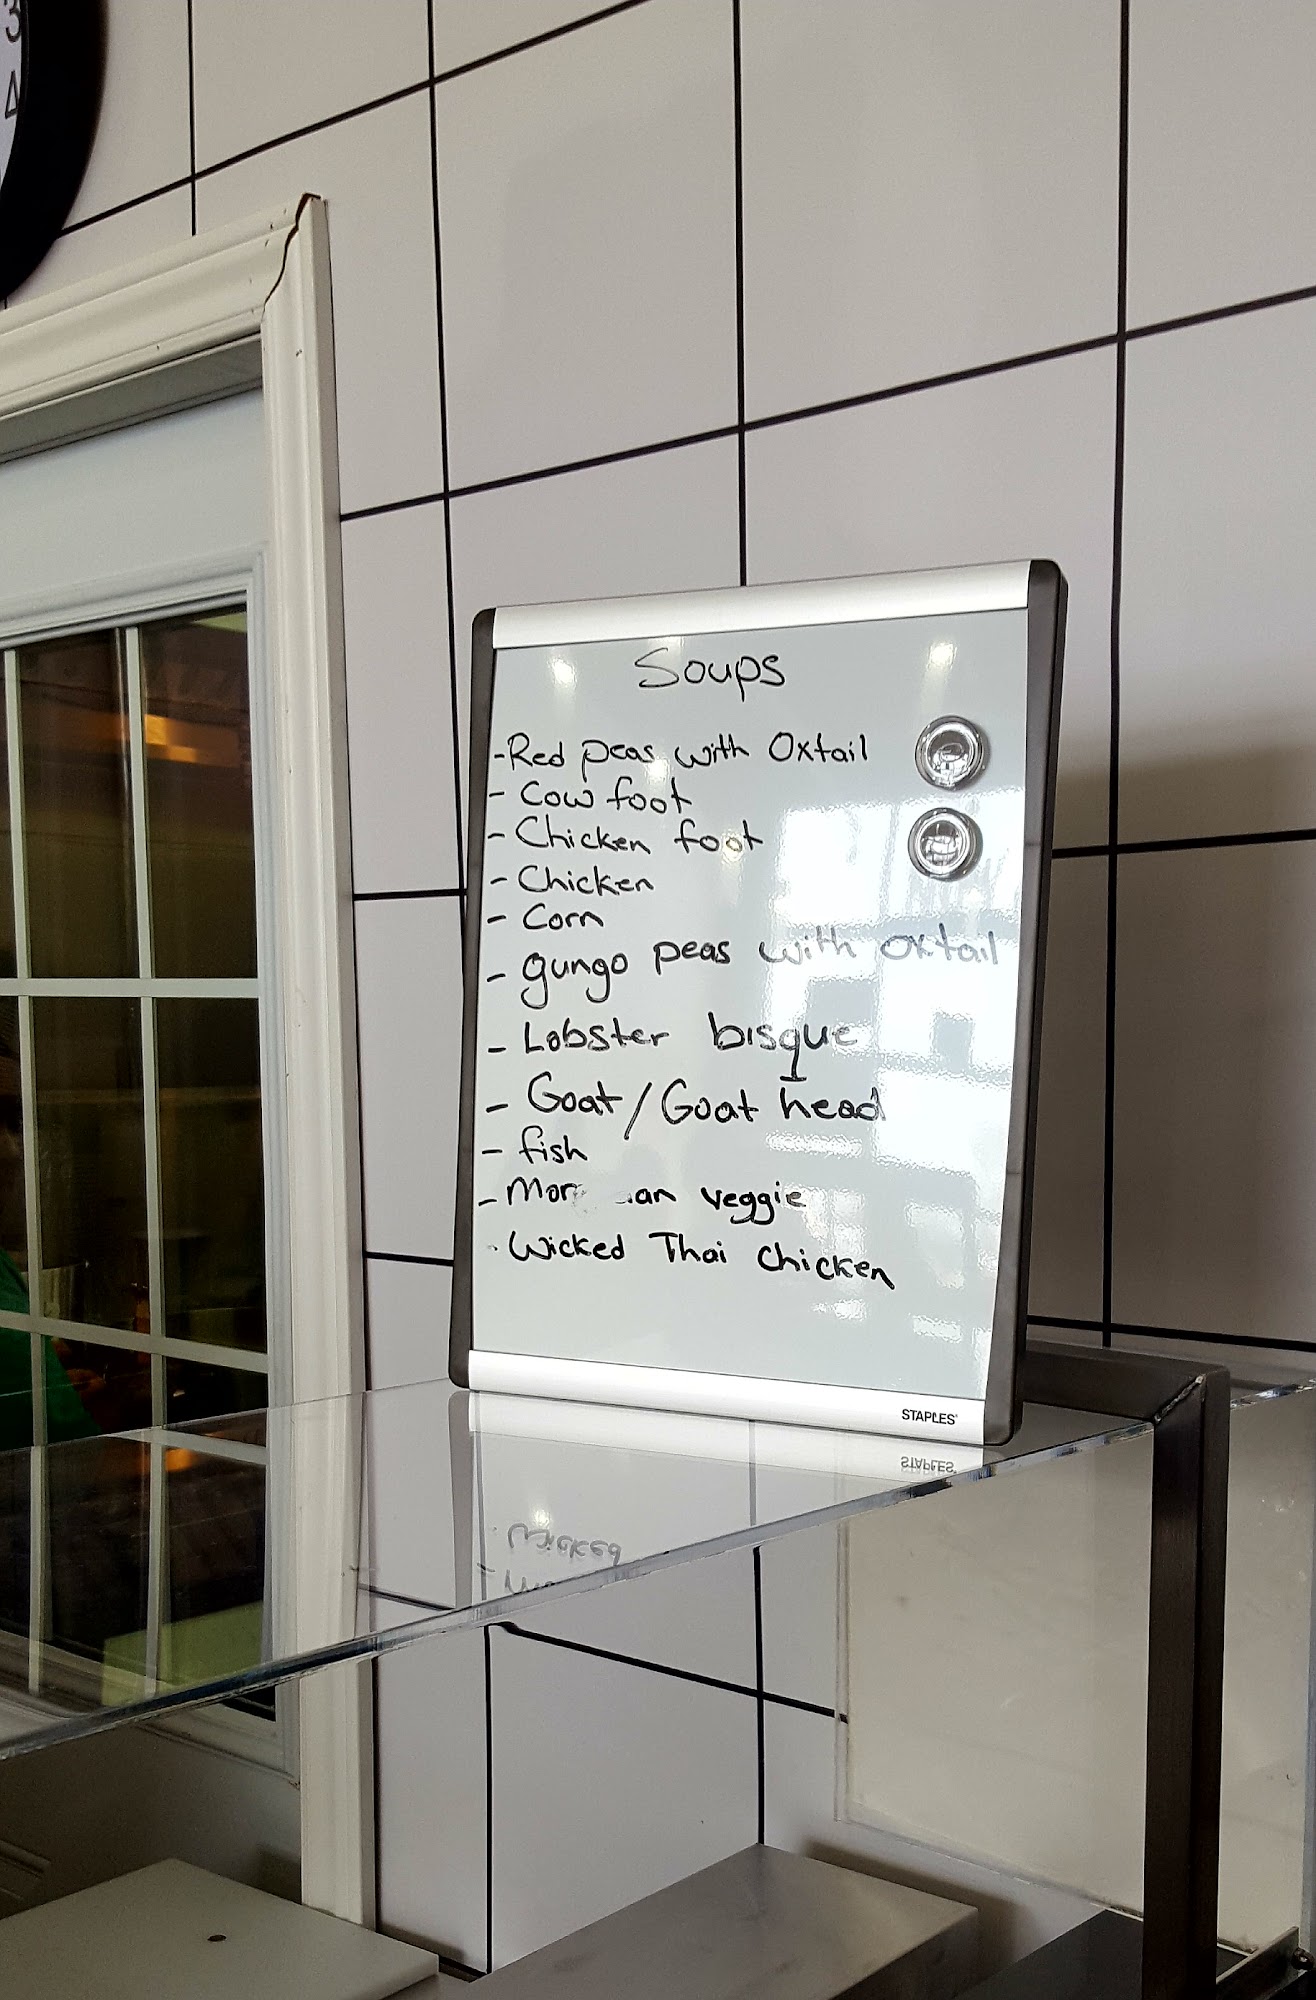 3
4
Soups
-Red peas with Oxtail
- Cow foot
- Chicken foot
- Chicken
- Corn
- gungo peas with oxtail
- Lobster bisque
- Goat/Goat head
- fish
- veggie
· Wicked Thai Chicken
STAPLES